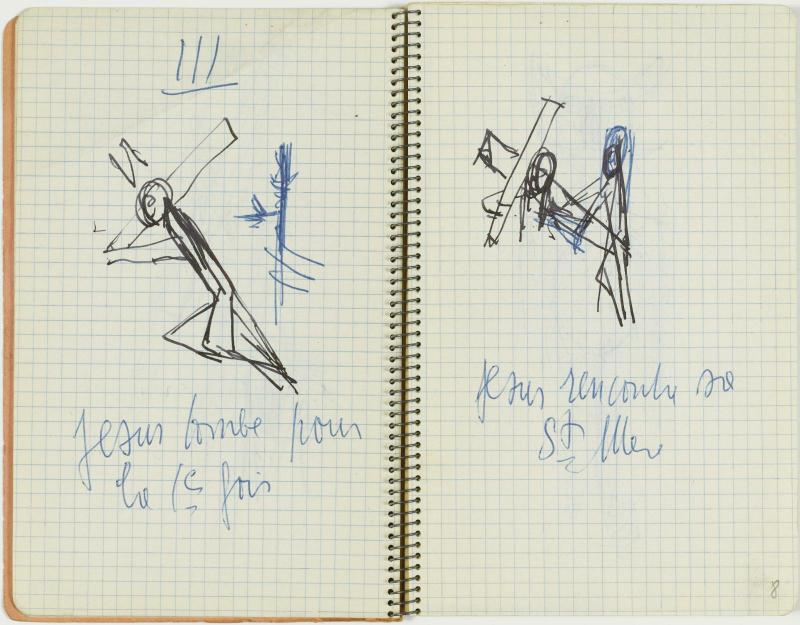 III
Jesus tombe pour
la 1e fois
Jesus rencontre sa
Ste Mere
8